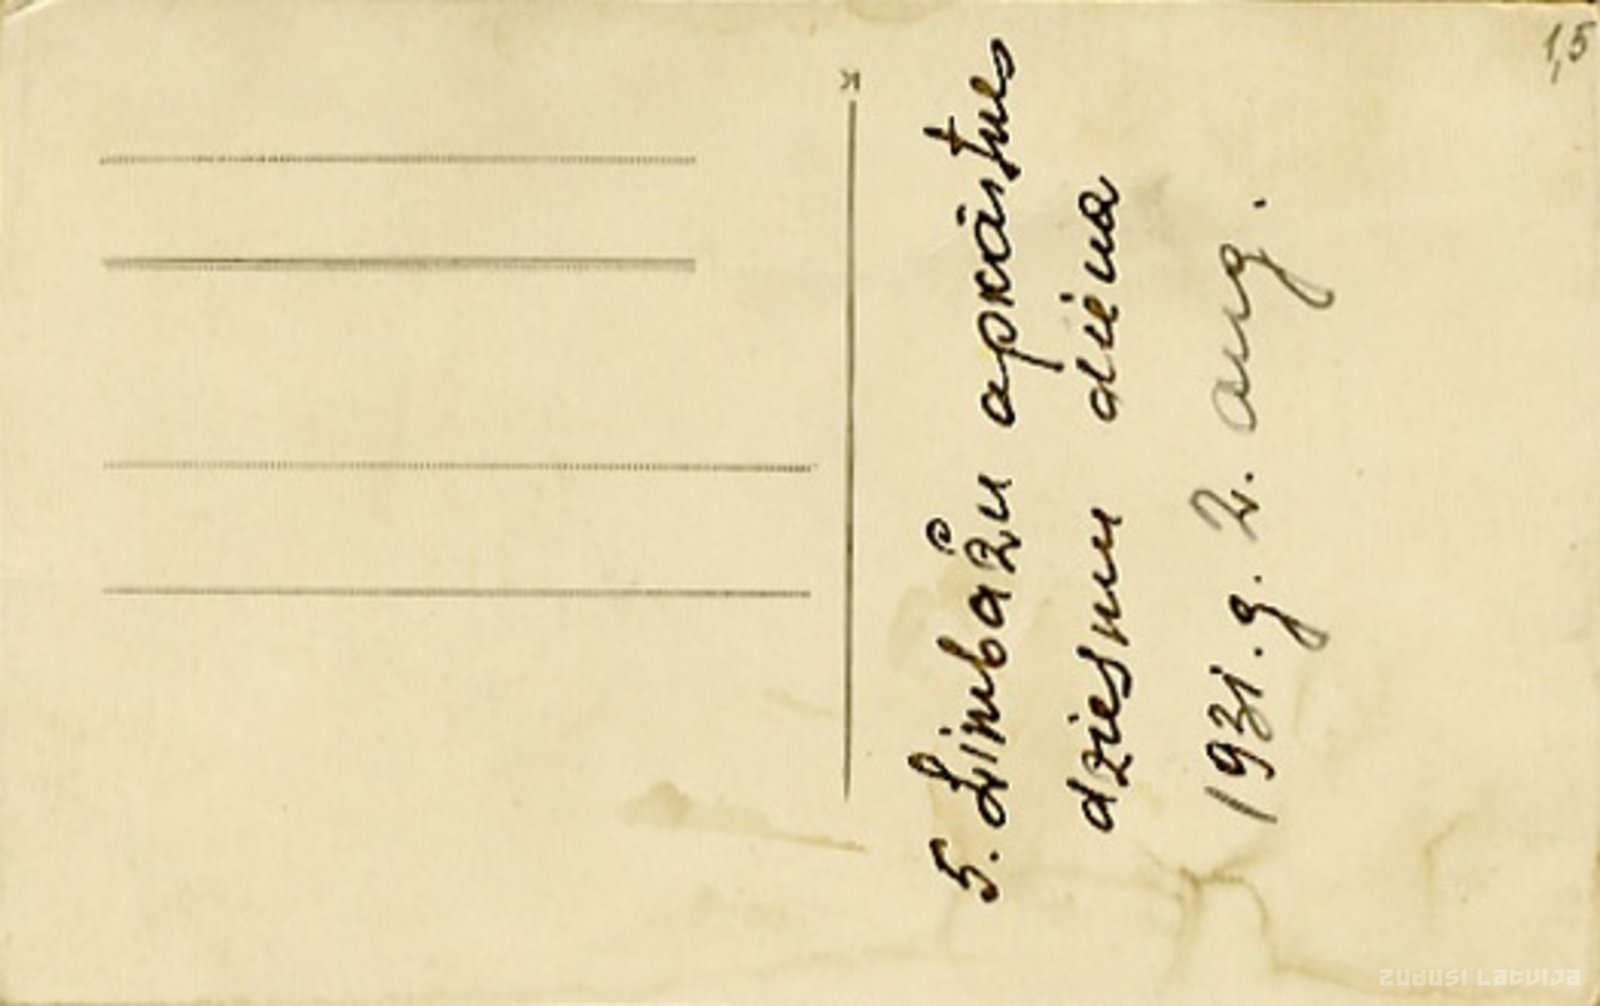 5. Limbažu apkārtnes
dziesmu diena
1931. g. 2. aug.
1,5
K
ZUDUSI LATVIJA